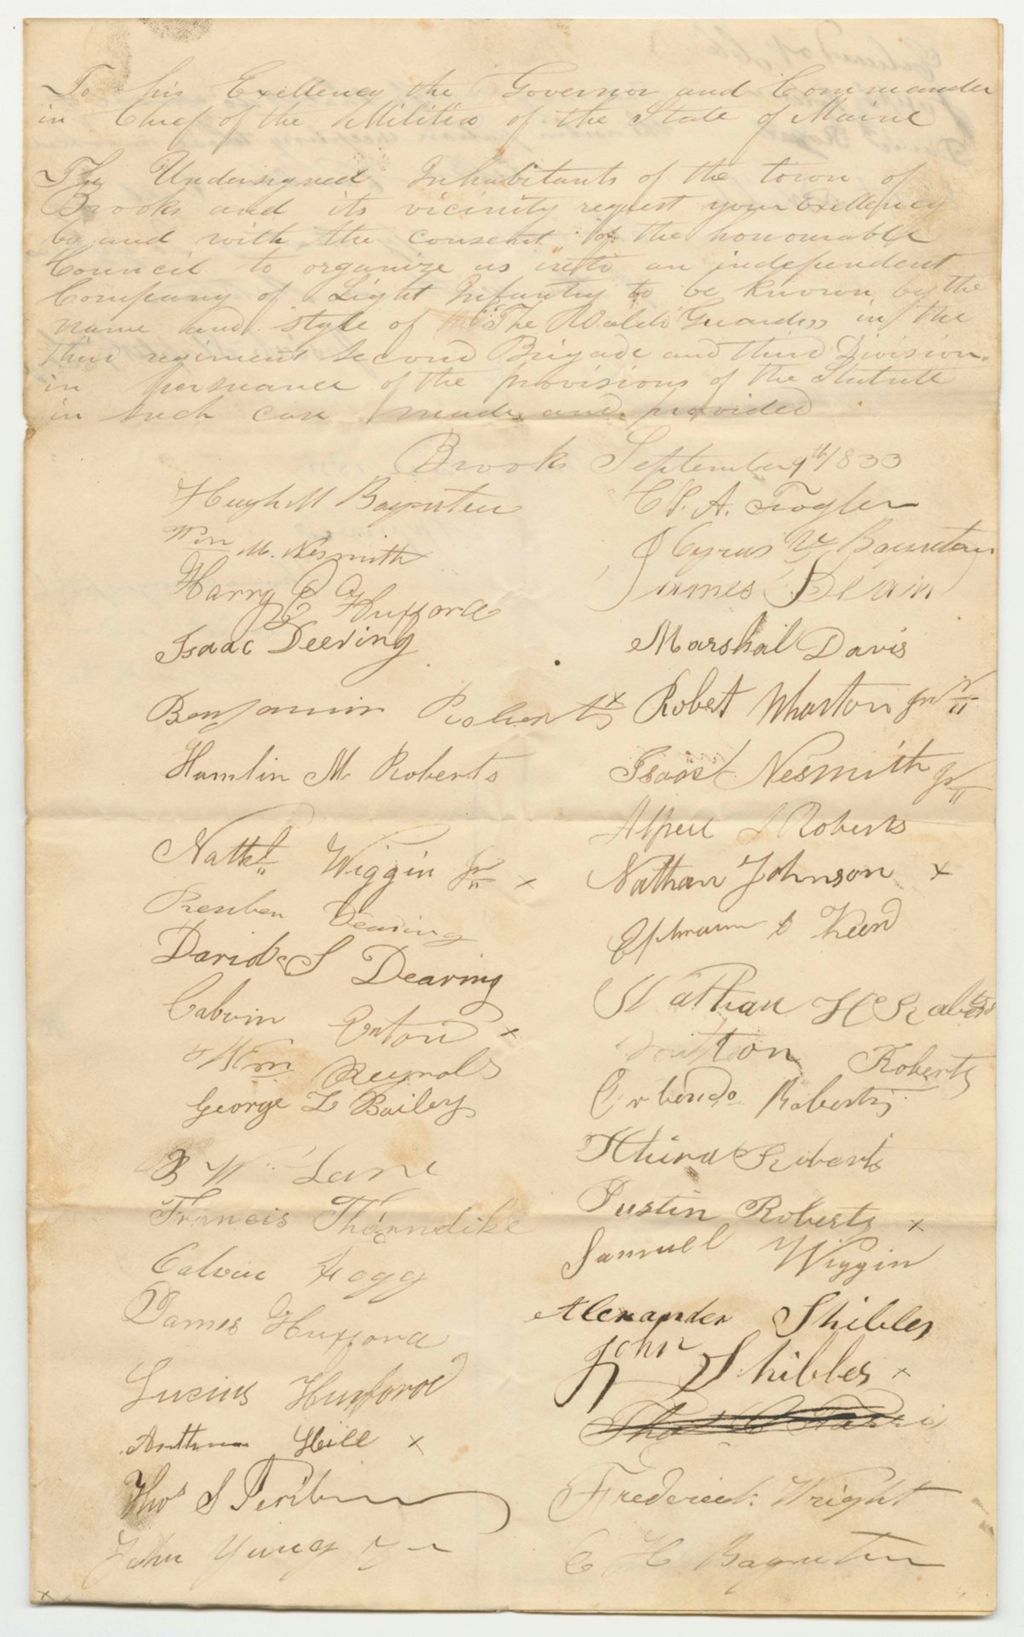 To his Exellency the Governor and Commander
in Chief of the Militia of the State of Maine
The Undersigned Inhabitants of the town of
Brooks and its vicinity request your Exellency
by and with the consent of the honourable
Council to organize us into an independent
Company of Light Infantry to be known by the
name and style of The Waldo Guards in the
third regiment Second Brigade and third Division
in persuance of the provisions of the Statute
in such case made and provided
Brooks September 9th 1833
Hugh M
Wm M. Nesmith
Harry Hufford
Isaac Deering
Benjamin Roberts x
Hamlin M Roberts
Nathl Wiggin Jr x
Reuben Dearing
David S Dearing
Calvin x
Wm Reynolds
George L Bailey
B W Lane
Francis Thorndike
Calvin Fogg
James Hufford
Lucius Hufford
Hill x
Thos S
John Young
C. S. A. Fogler
Cyrus
James
Marshal Davis
Robert Wharton Jr
Isaac Nesmith Jr
Alfred Roberts
Nathan Johnson x
Ephraim
Nathan H Roberts
Roberts
Orlando Roberts
Roberts
Justin Roberts x
Samuel Wiggin
Alexander Shibles
John Shibles x
Tho
Frederick Wright
C H